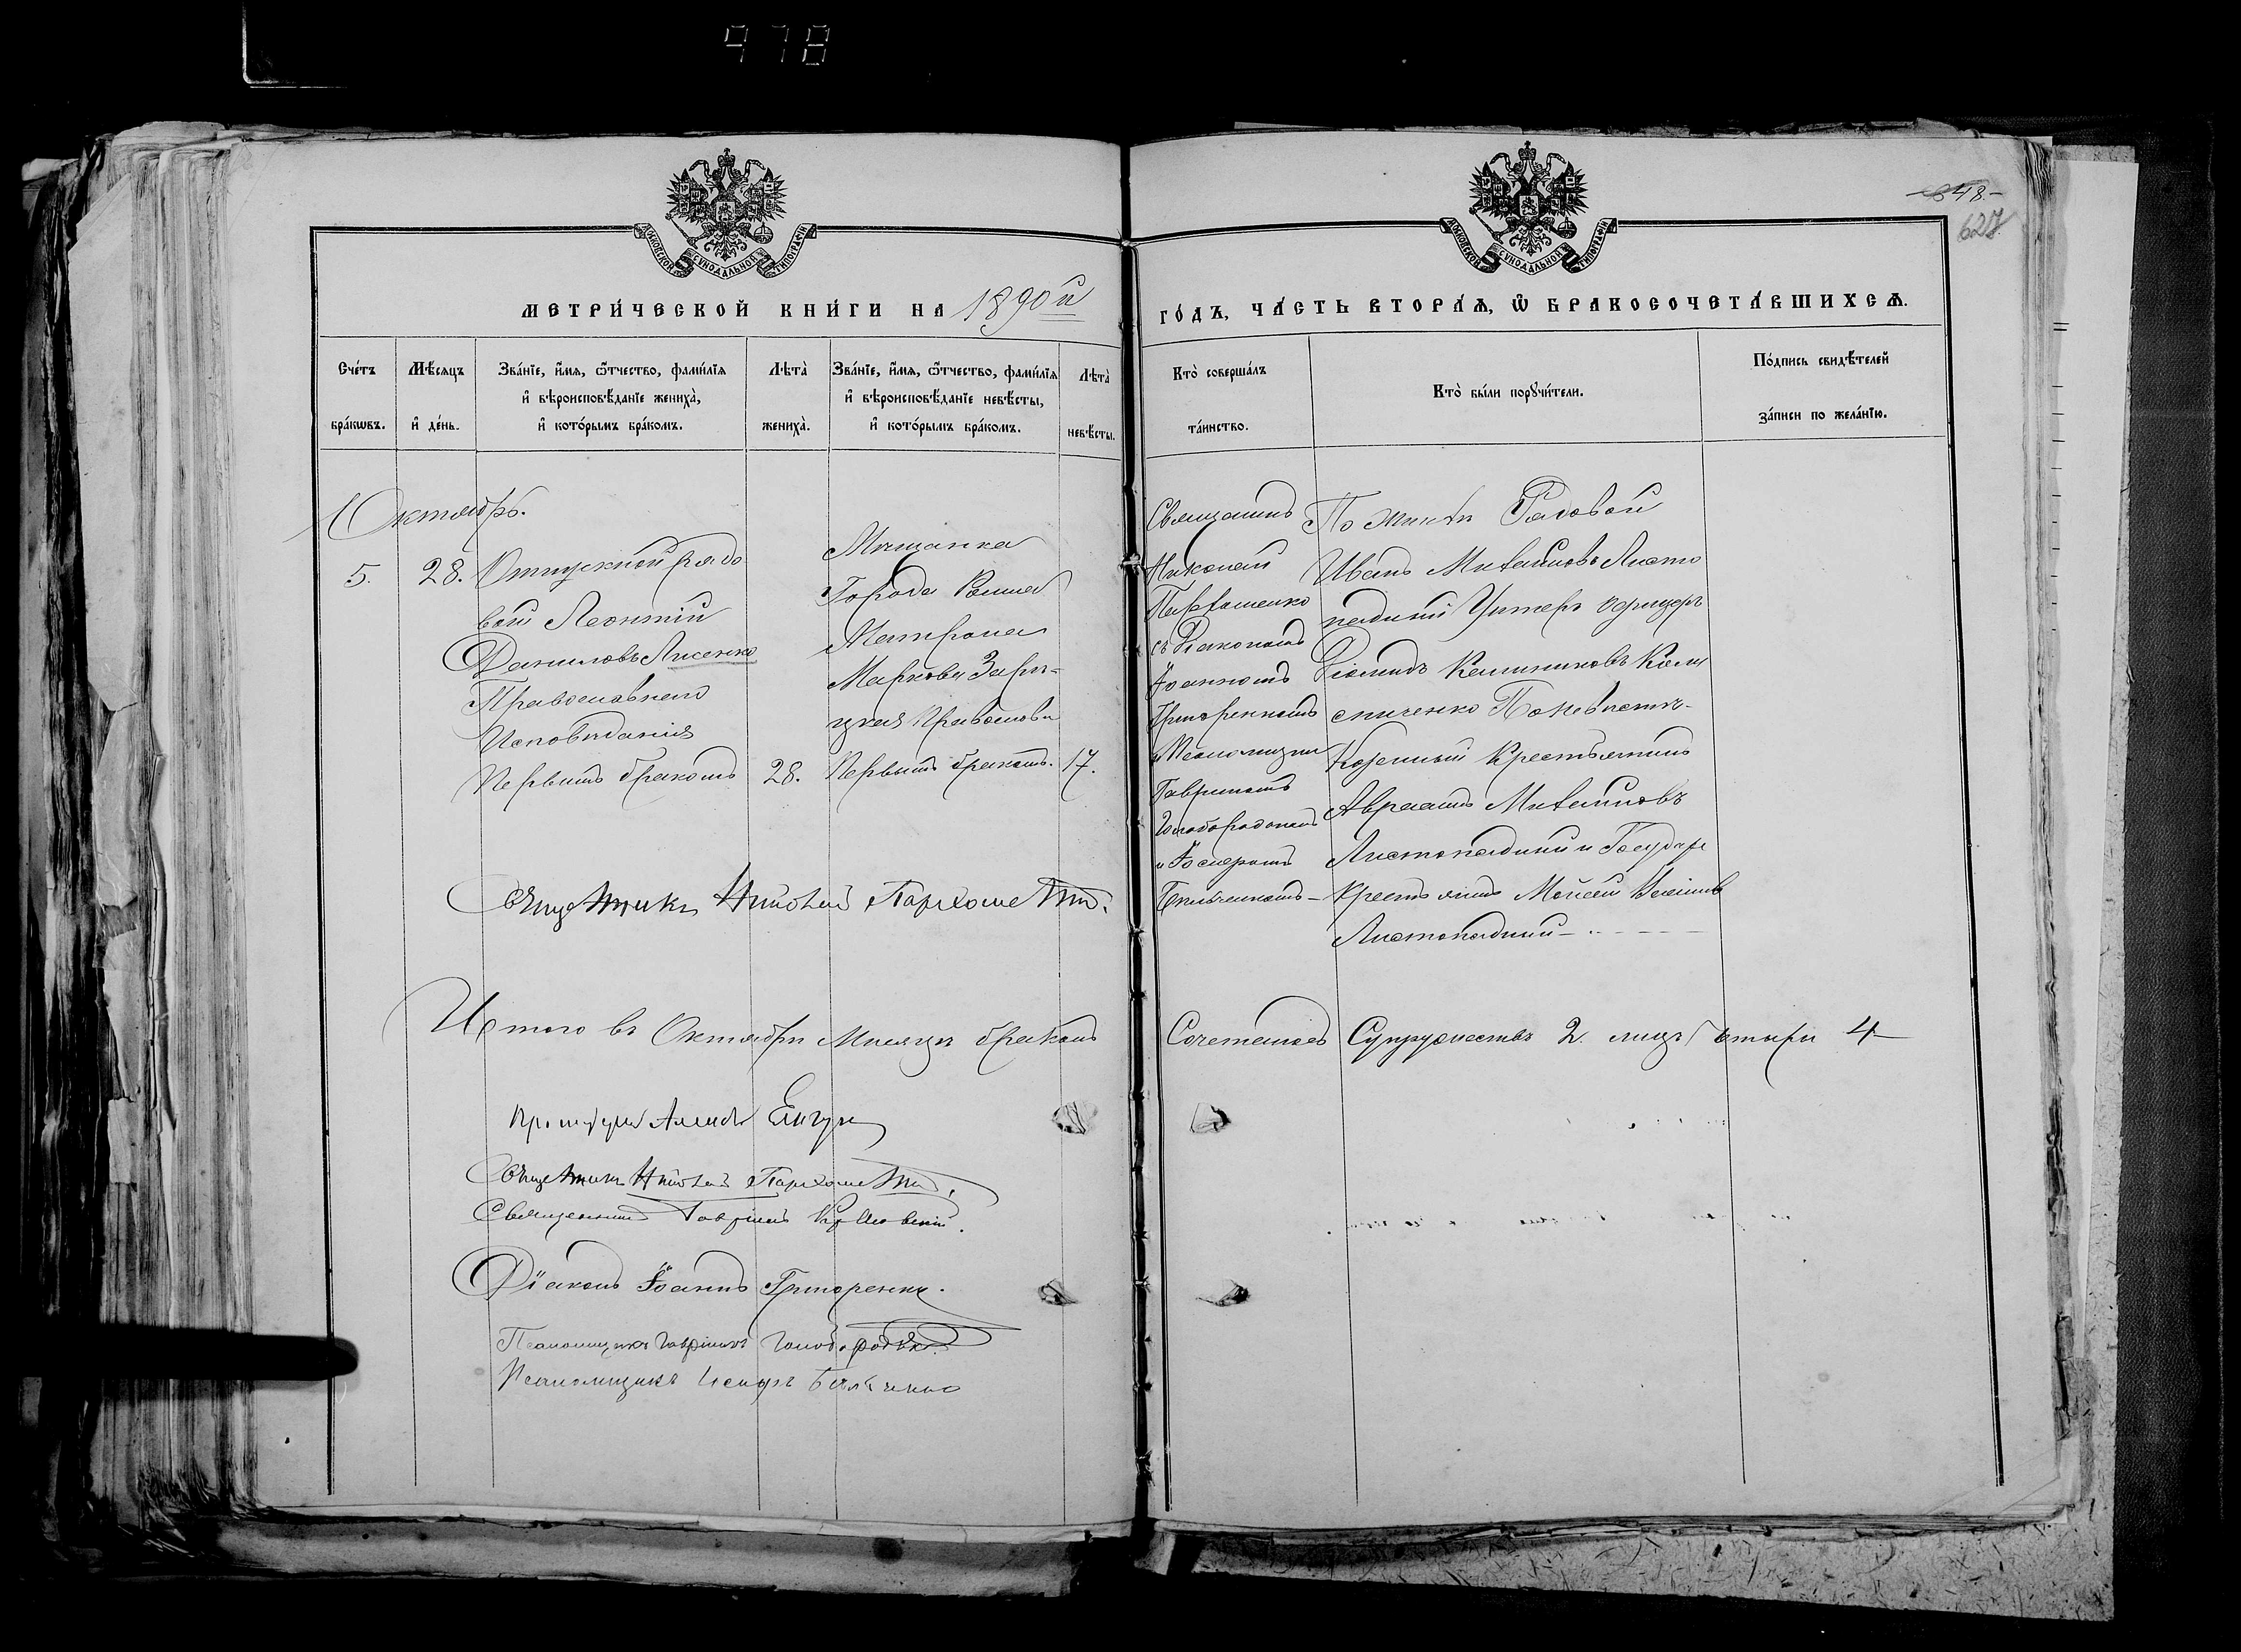 978
МОСКОВСКОЙ СѴНОДАЛЬНОЙ ТИПОГРАФІИ
МОСКОВСКОЙ СѴНОДАЛЬНОЙ ТИПОГРАФІИ
848.-
627
МЕТРИ́ЧЕСКОЙ КНИ́ГИ НА 1890й
ГО́ДЪ, ЧА́СТЬ ВТОРА́Я, Ѡ҆ БРАКОСОЧЕТА́ВШИХСЯ.
Сче́тъ бра́кѡвъ.
Мѣ́сяцъ и҆ де́нь.
Зва́нїе, и҆́мя, ѻ҆́тчество, фами́лїя и҆ вѣроисповѣ́данїе жениха̀, и҆ кото́рымъ бра́комъ.
Лѣта̀ жениха̀.
Зва́нїе, и҆́мя, ѻ҆́тчество, фами́лїя и҆ вѣроисповѣ́данїе невѣ́сты, и҆ кото́рымъ бра́комъ.
Лѣта̀ невѣ́сты.
Кто̀ соверша́лъ та́инство.
Кто̀ бы́ли порꙋчи́тели.
По́дпись свидѣ́телей за́писи по жела́нїю.
Октябрь.
5.
28.
Отпускной рядо
вой Леонтій
Даниловъ Лисенко
Православнаго
Исповѣданія
Первымъ бракомъ
28.
Мѣщанка
Города
Матрона
Маркова Зари-
цкая Православн
Первымъ бракомъ.
17.
Священникъ
Николай
Пархоменко
съ Діакономъ
Іоанномъ
Григоренкомъ
и Псаломщи
Гавріиломъ
Голобородькомъ
и Іосифомъ
По женихѣ Рядовой
Иванъ Михаиловъ Листо
падний Унтеръ офицеръ
Калинниковъ Коли
сниченко По невѣстѣ-
Крестьянинъ
Авраамъ Михаиловъ
Листопадний и Государ
Крестьянинъ Моисей
Листопадний -
Священникъ Николай Пархоменко.
Итого въ Октябрѣ Мѣсяцѣ бракомъ
Сочеталось Супружествъ 2. лицъ Четыри 4-
Священникъ Николай Пархоменко.
Священникъ Гавріилъ
Діаконъ Іоаннъ Григоренко.
Псаломщикъ Гавріилъ Голобородько.
Псаломщикъ Іосифъ